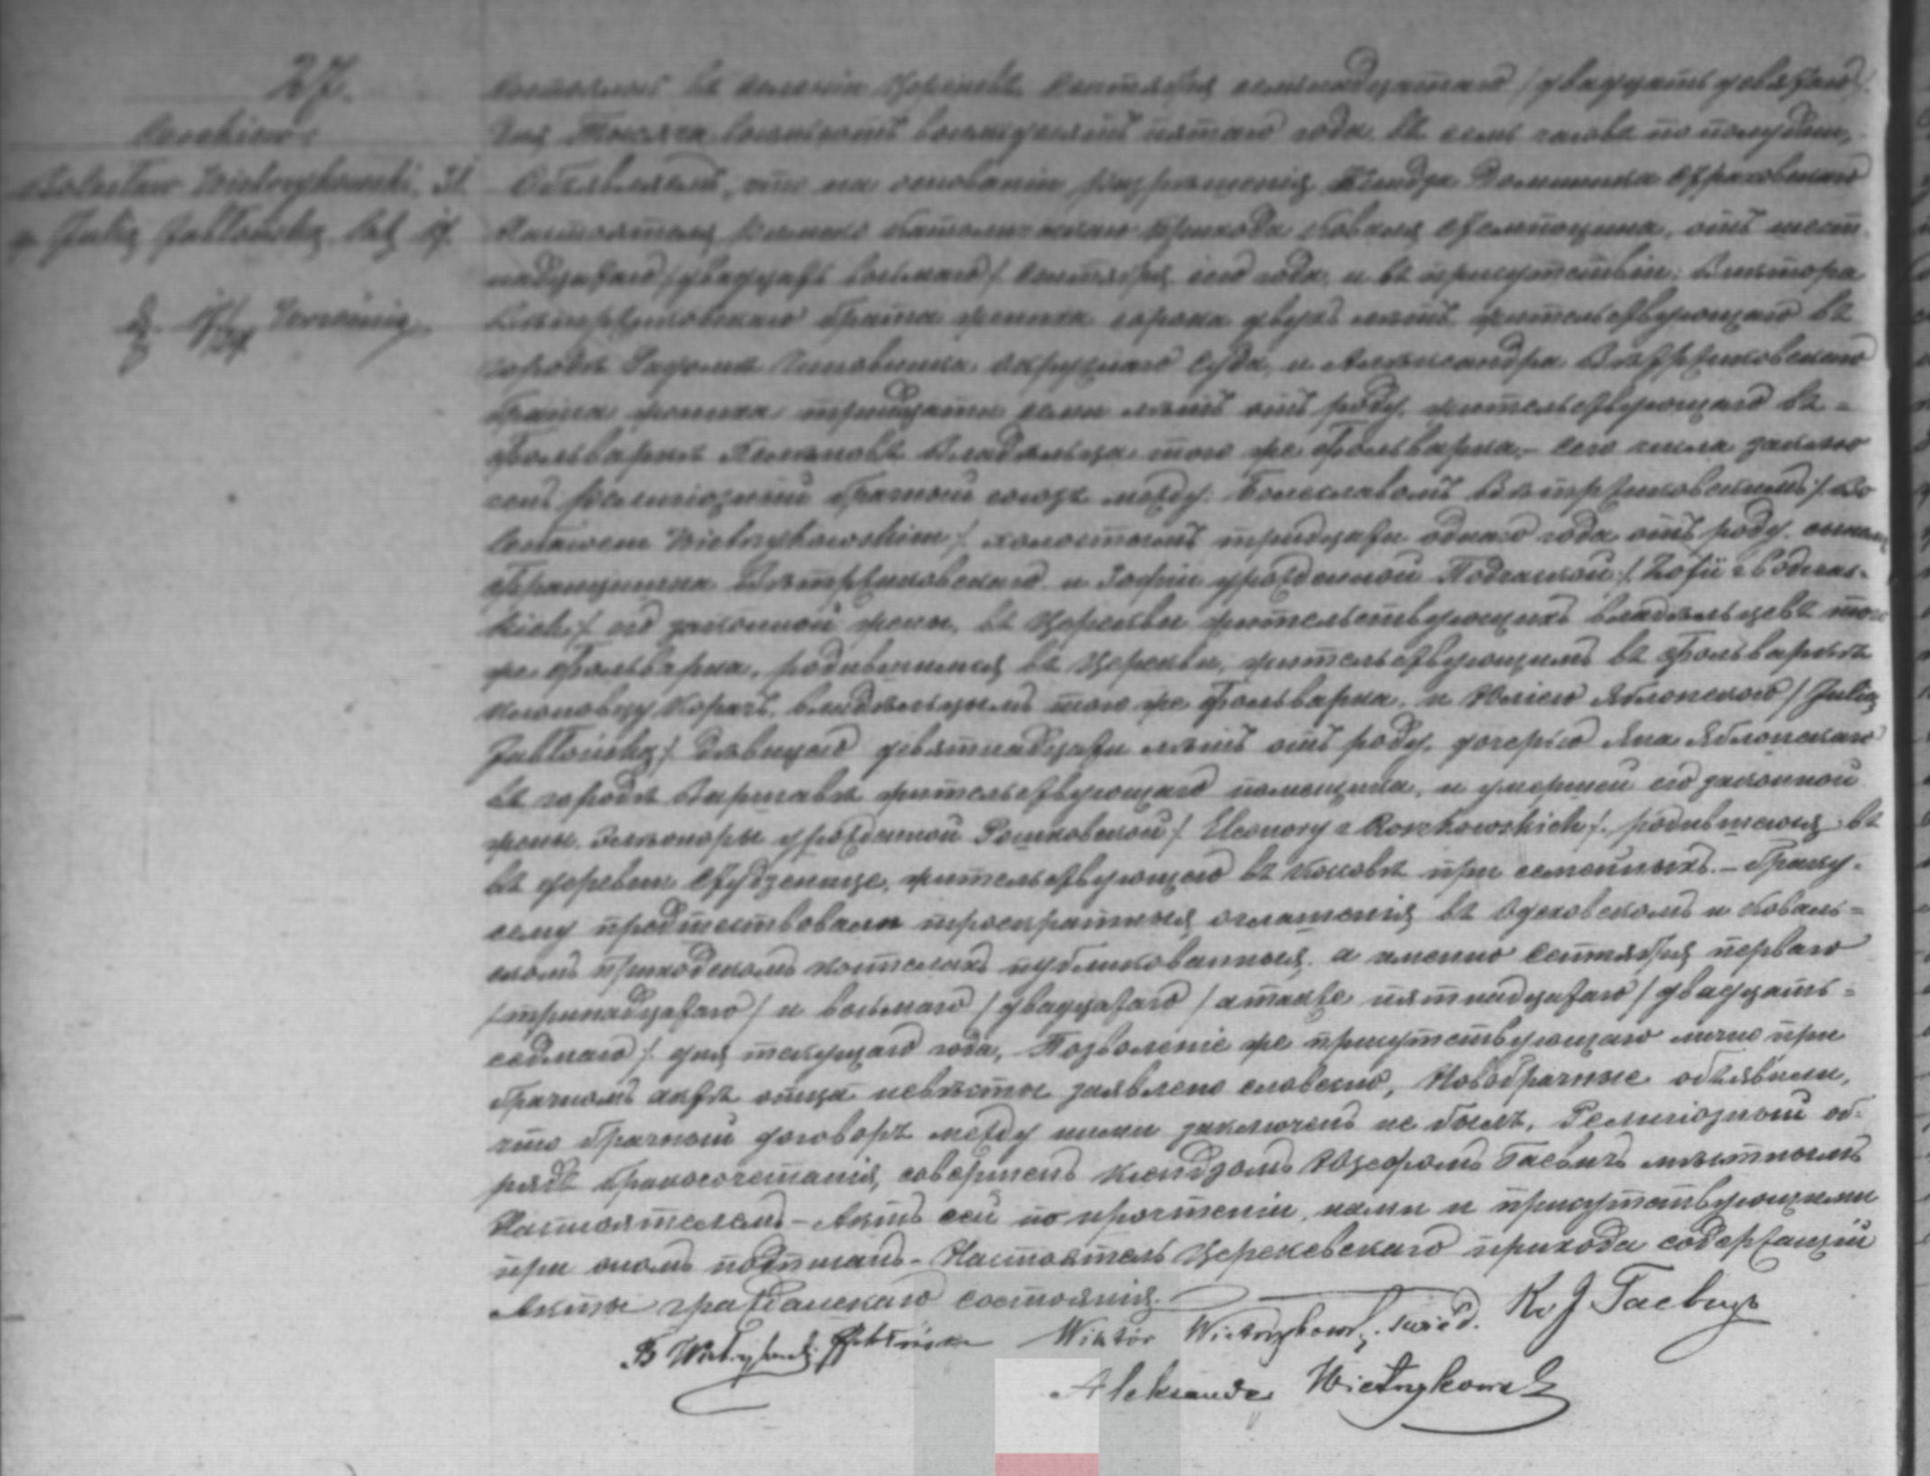 27.
Cerekiew:
Bolesław Wietrzykowski, 31
z Julią Jabłońską lat 19.
17/29 Września
Состоялось въ селеніи Церекевъ, Сентября семьнадцатаго /двадцать девятаго/
дня Тысяча восемьсотъ восемьдесятъ пятаго года въ семь часовъ по полудни,
Объявляемъ, что на основаніи разрѣшенія Ксендза Доминика
Настоятеля Римско Католическаго прихода Коваля Стемпоцина, отъ шест-
надцатаго /двадцать восьмаго/ Сентября сего года, и въ присутствіи: Виктора
Вѣтржиковскаго брата жениха сорока двухъ лѣтъ, жительствующаго въ
городѣ Радомѣ Чиновника окружнаго Суда, и Александра Вѣтржиковскаго
брата жениха тридцати семи лѣтъ отъ роду, жительствующаго въ-
Фольваркѣ Владѣльца того же Фольварка,- сего числа заклю
ченъ религіозный брачный союзъ между: Болеславомъ Вѣтржиковскимъ /Bo
lesławem Wietrzykowskim/ холостымъ тридцати одного года отъ роду, сыномъ
Францишка Вѣтржиковскаго и Зофіи урожденной Подчаской /Zofii z Podczas-
kich/ его законной жены, въ Церекви жительствующихъ владѣльцевъ того
же Фольварка, родившимся въ Церекви, жительствующимъ въ Фольваркѣ
владѣльцемъ того же Фольварка, и Юліею Яблонскою /Julią
Jabłońską/ дѣвицею девятнадцати лѣтъ отъ роду, дочерью Яна Яблонскаго
въ городѣ Варшавѣ жительствующаго помѣщика, и умершей его законной
жены Элеоноры урожденной Рошковской /Eleonory z Roszkowskich/, родившеюся въ
въ деревни Студзенице, жительствующею въ при семейныхъ.- Браку
сему предшествовали троекратныя оглашенія въ Одеховскомъ и Коваль=
скомъ приходскомъ костелахъ публикованныя, а именно Сентября перваго
/тринадцатаго/ и восьмаго /двадцатаго/ а также пятнадцатаго /двадцать=
седмаго/ дня текущаго года, Позволеніе же присутствующаго лично при
брачномъ актѣ отца невѣсты заявлено словесно, Новобрачные объявили,
что брачный договоръ между ними заключенъ не былъ, Религіозный об-
рядъ бракосочетанія, совершенъ Ксендзомъ Юзефомъ Гаевичъ мѣстнымъ
Настоятелемъ - Актъ сей по прочтеніи, нами и присутствующими
при ономъ подписанъ - Настоятель Церекевскаго прихода содержащій
Акты гражданскаго состоянія.
Кс J Гаевичъ
B Wietrzykowski J Jabłońska Wiktór Wietrzykowski
Aleksander Wietrzykowski